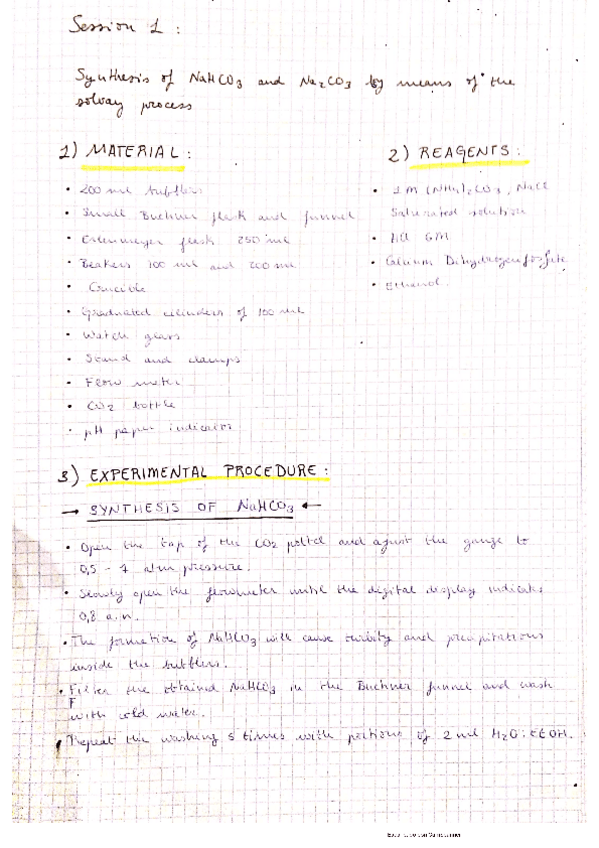 Session 1 :
Synthesis of NaHCO3 and Na2CO3 by means of the
solvay process
1) MATERIAL :
• 200 ml bubblers
• Small Buchner flask and funnel
• Erlenmeyer flask 250 ml
• Beakers 100 ml and 200 ml
• Crucible
• Graduated cilinders of 100 ml
• Watch glass
• Stand and clamps
• Flow meter
• CO2 bottle
• pH paper indicator
2) REAGENTS :
• 2M (NH4)2CO3, NaCl
Saturated solution
• HCl 6M
• Calcium Dihydrogenfosfate
• Ethanol.
3) EXPERIMENTAL PROCEDURE :
→ SYNTHESIS OF NaHCO3 ←
• Open the tap of the CO2 and ajust the gauge to
0,5 - 1 atm pressure.
• Slowly open the flowmeter until the digital display indicates
0,8 a.n.
• The formation of NaHCO3 will cause turbity and precipitations
inside the bubblers.
• Filter the obtained NaHCO3 in the Buchner funnel and wash
with cold water.
• Repeat the washing 5 times with portions of 2 ml H2O:EtOH.